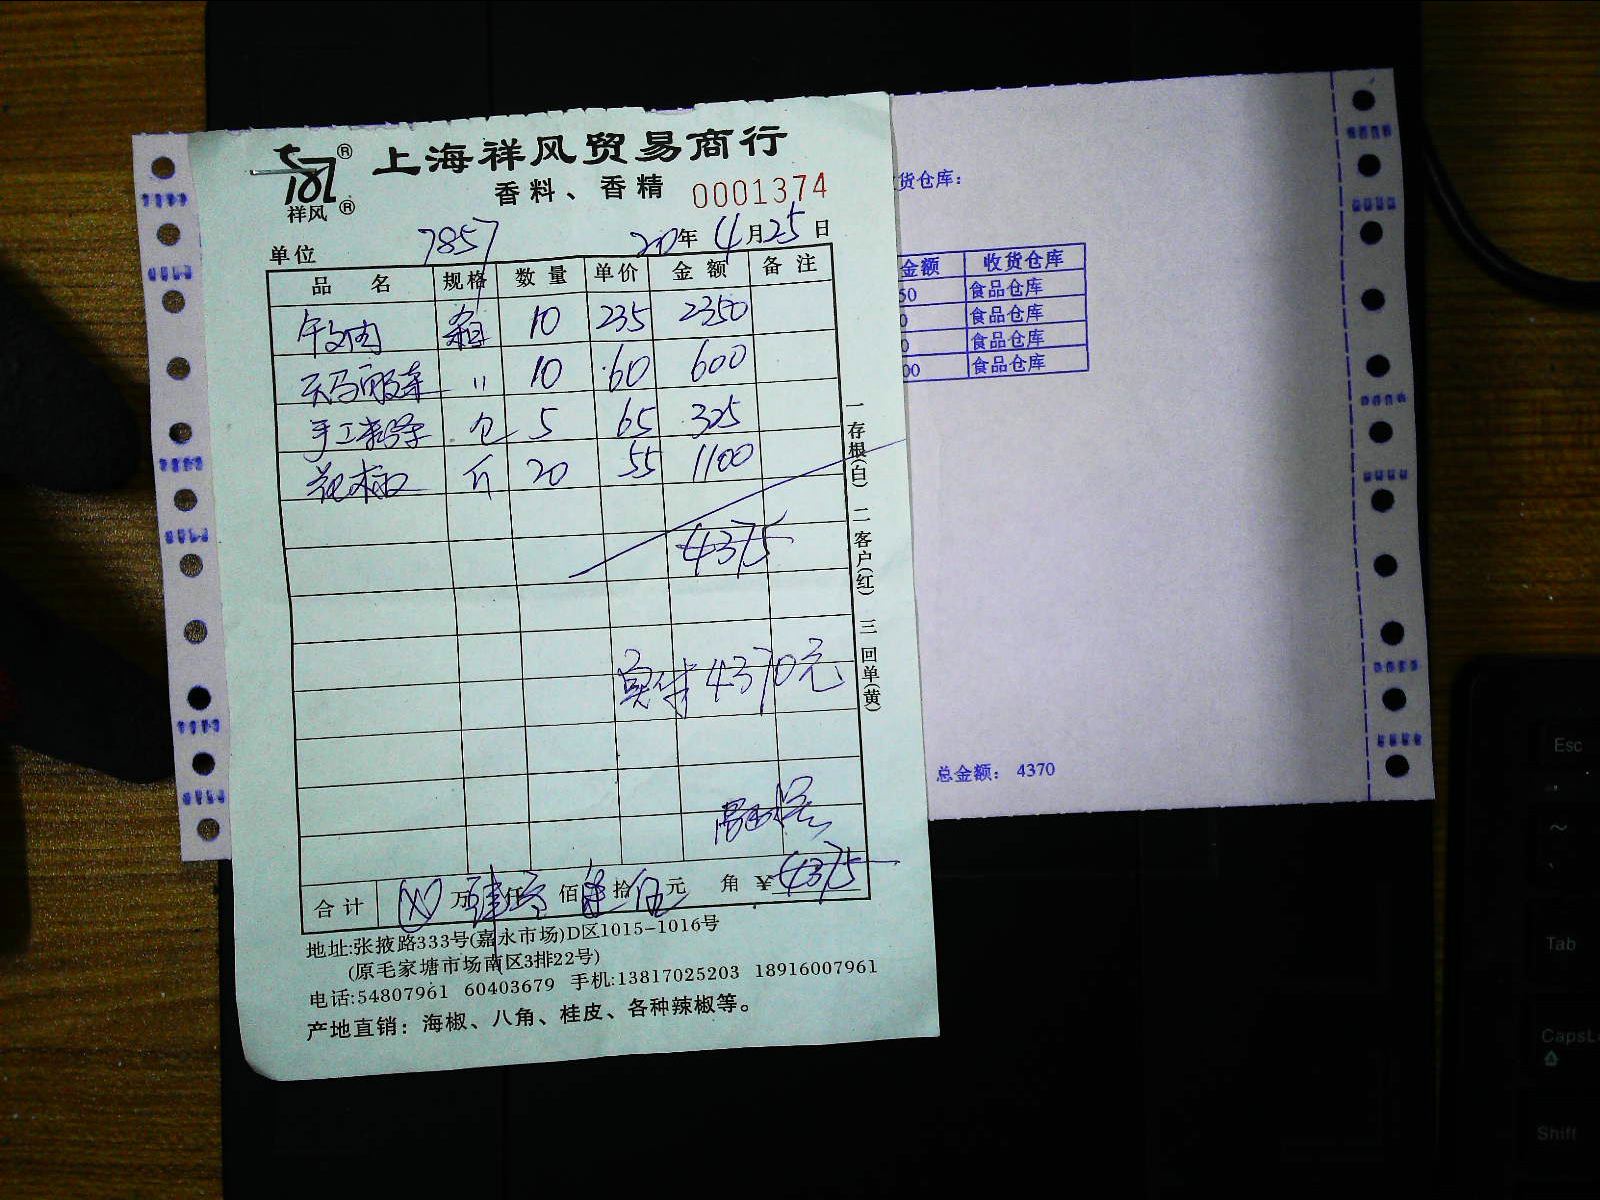 上海祥风贸易商行
祥风
香料、香精 0001374
单位 7857 20年 4月25日
品名 规格 数量 单价 金额 备注
牛肉 箱 10 235 2350
10 60 600
手工 包 5 65 325
花椒 斤 20 55 1100
4375
实付4370元
合计 万肆仟叁佰柒拾伍元 角 ¥4375
地址:张掖路333号(嘉永市场)D区1015-1016号
(原毛家塘市场南区3排22号)
电话:54807961 60403679 手机:13817025203 18916007961
产地直销：海椒、八角、桂皮、各种辣椒等。
一存根(白) 二客户(红) 三回单(黄)
货仓库：
金额 收货仓库
50 食品仓库
0 食品仓库
0 食品仓库
00 食品仓库
总金额： 4370
Esc
~
Tab
CapsL
Shift